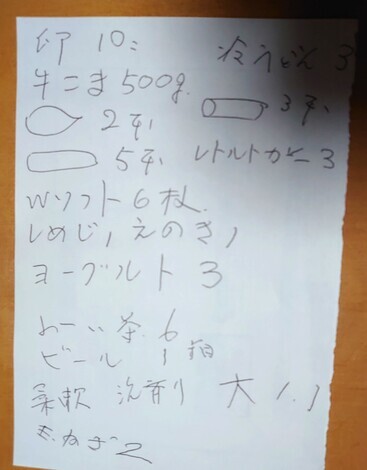 10コ 冷うどん 3
牛こま500g.
2 3
5 レトルトカレー3
Wソフト6枚.
しめじ1 えのき1
ヨーグルト 3
おーい茶 6
ビール 1箱
柔軟 洗剤 大 1.1
ねぎ2